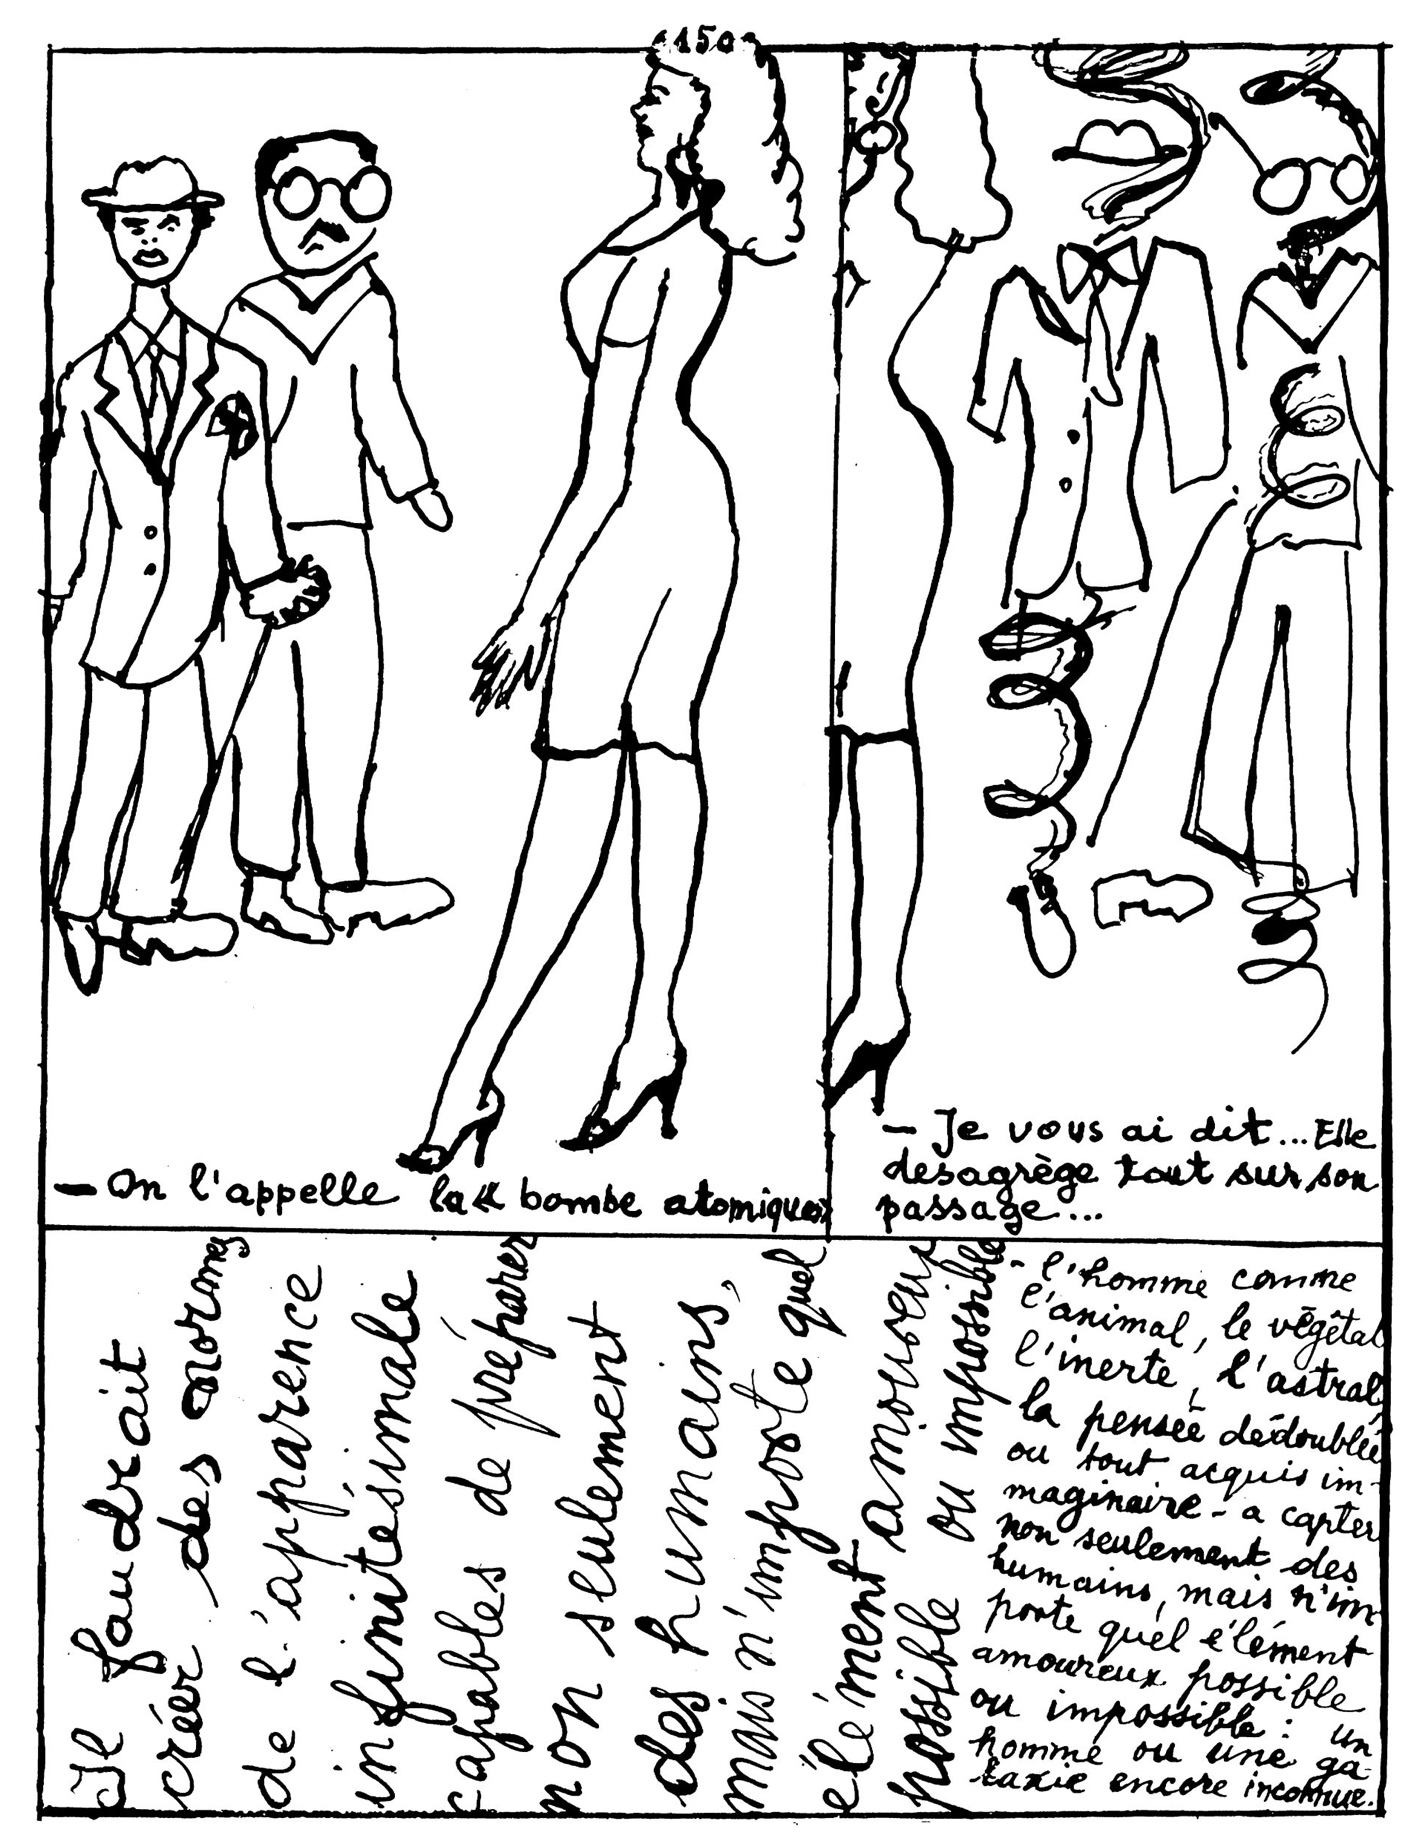 150
— On l'appelle la « bombe atomique »
— Je vous ai dit... Elle
desagrège tout sur son
passage...
Il faudrait
créer des norones
de l'apparence
infinitésimale
capables de préparer
non seulement
des humains,
mais n'importe quel
élément amoureux
possible ou impossible
- l'homme comme
l'animal, le végétal
l'inerte, l'astral,
la pensée dédoublée
ou tout acquis im-
maginaire - a capter
non seulement des
humains, mais n'im-
porte quel élément
amoureux possible
ou impossible : un
homme ou une ga-
laxie encore inconnue.